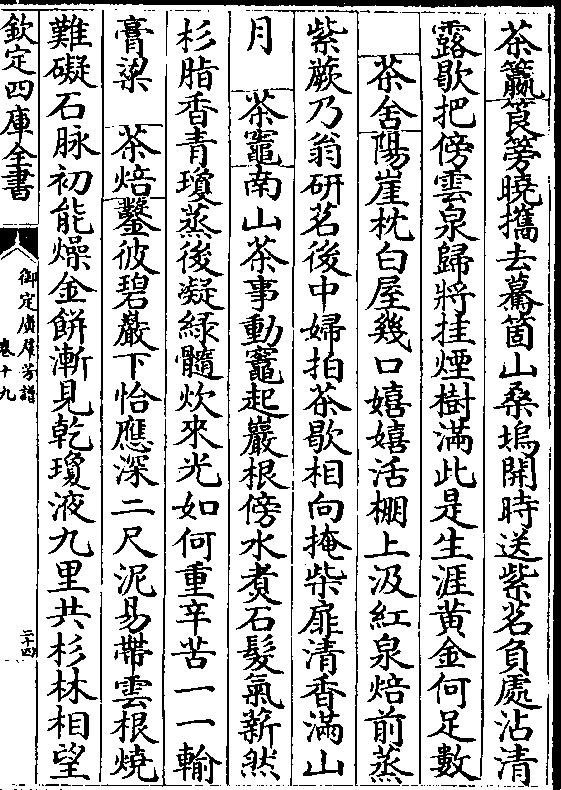 茶籯筤篣曉攜去驀箇山桑塢開時送紫茗負處沾清
露歇把傍雲泉歸將挂煙樹滿此是生涯黄金何足數
茶舍陽崖枕白屋幾口嬉嬉活棚上汲紅泉焙前蒸
紫蕨乃翁研茗後中婦拍茶歇相向掩柴扉清香滿山
月　茶竈南山茶事動竈起巖根傍水煮石髮氣薪然
杉脂香青瓊蒸後凝綠髓炊來光如何重辛苦一一輸
膏粱　茶焙鑿彼碧巖下恰應深二尺泥易帶雲根燒
難礙石脉初能燥金餅漸見乾瓊液九里共杉林相望
欽定四庫全書
御定廣羣芳譜
卷十九
二十四